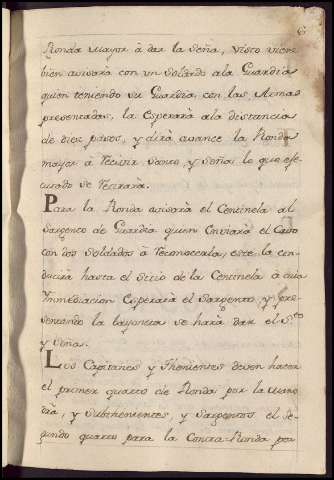 6
Ronda mayor à dar la seña, visto viene
bien avisarà con un soldado ala Guardia
quien teniendo su Guardia con las Armas
presentadas, la esperarà ala distancia
de diez pasos, y dirà avance la Ronda
mayor à recivir Santo, y seña lo que efe-
cutado se retirarà.
Para la Ronda avisarà el Centinela al
Sargento de Guardia quien enviarà el Cavo
con dos soldados à reconocerla, este la con-
ducirà hasta el sitio de la Centinela à cuia
Inmediacion esperarà el Sargento, y pre-
sentando la bayoneta se harà dar el S.to
y señas.
Los Capitanes y Thenientes deven hacer
el primer quarto de Ronda por la mura-
lla, y subthenientes, y sargentos el se-
gundo quarto para la Contra-Ronda por